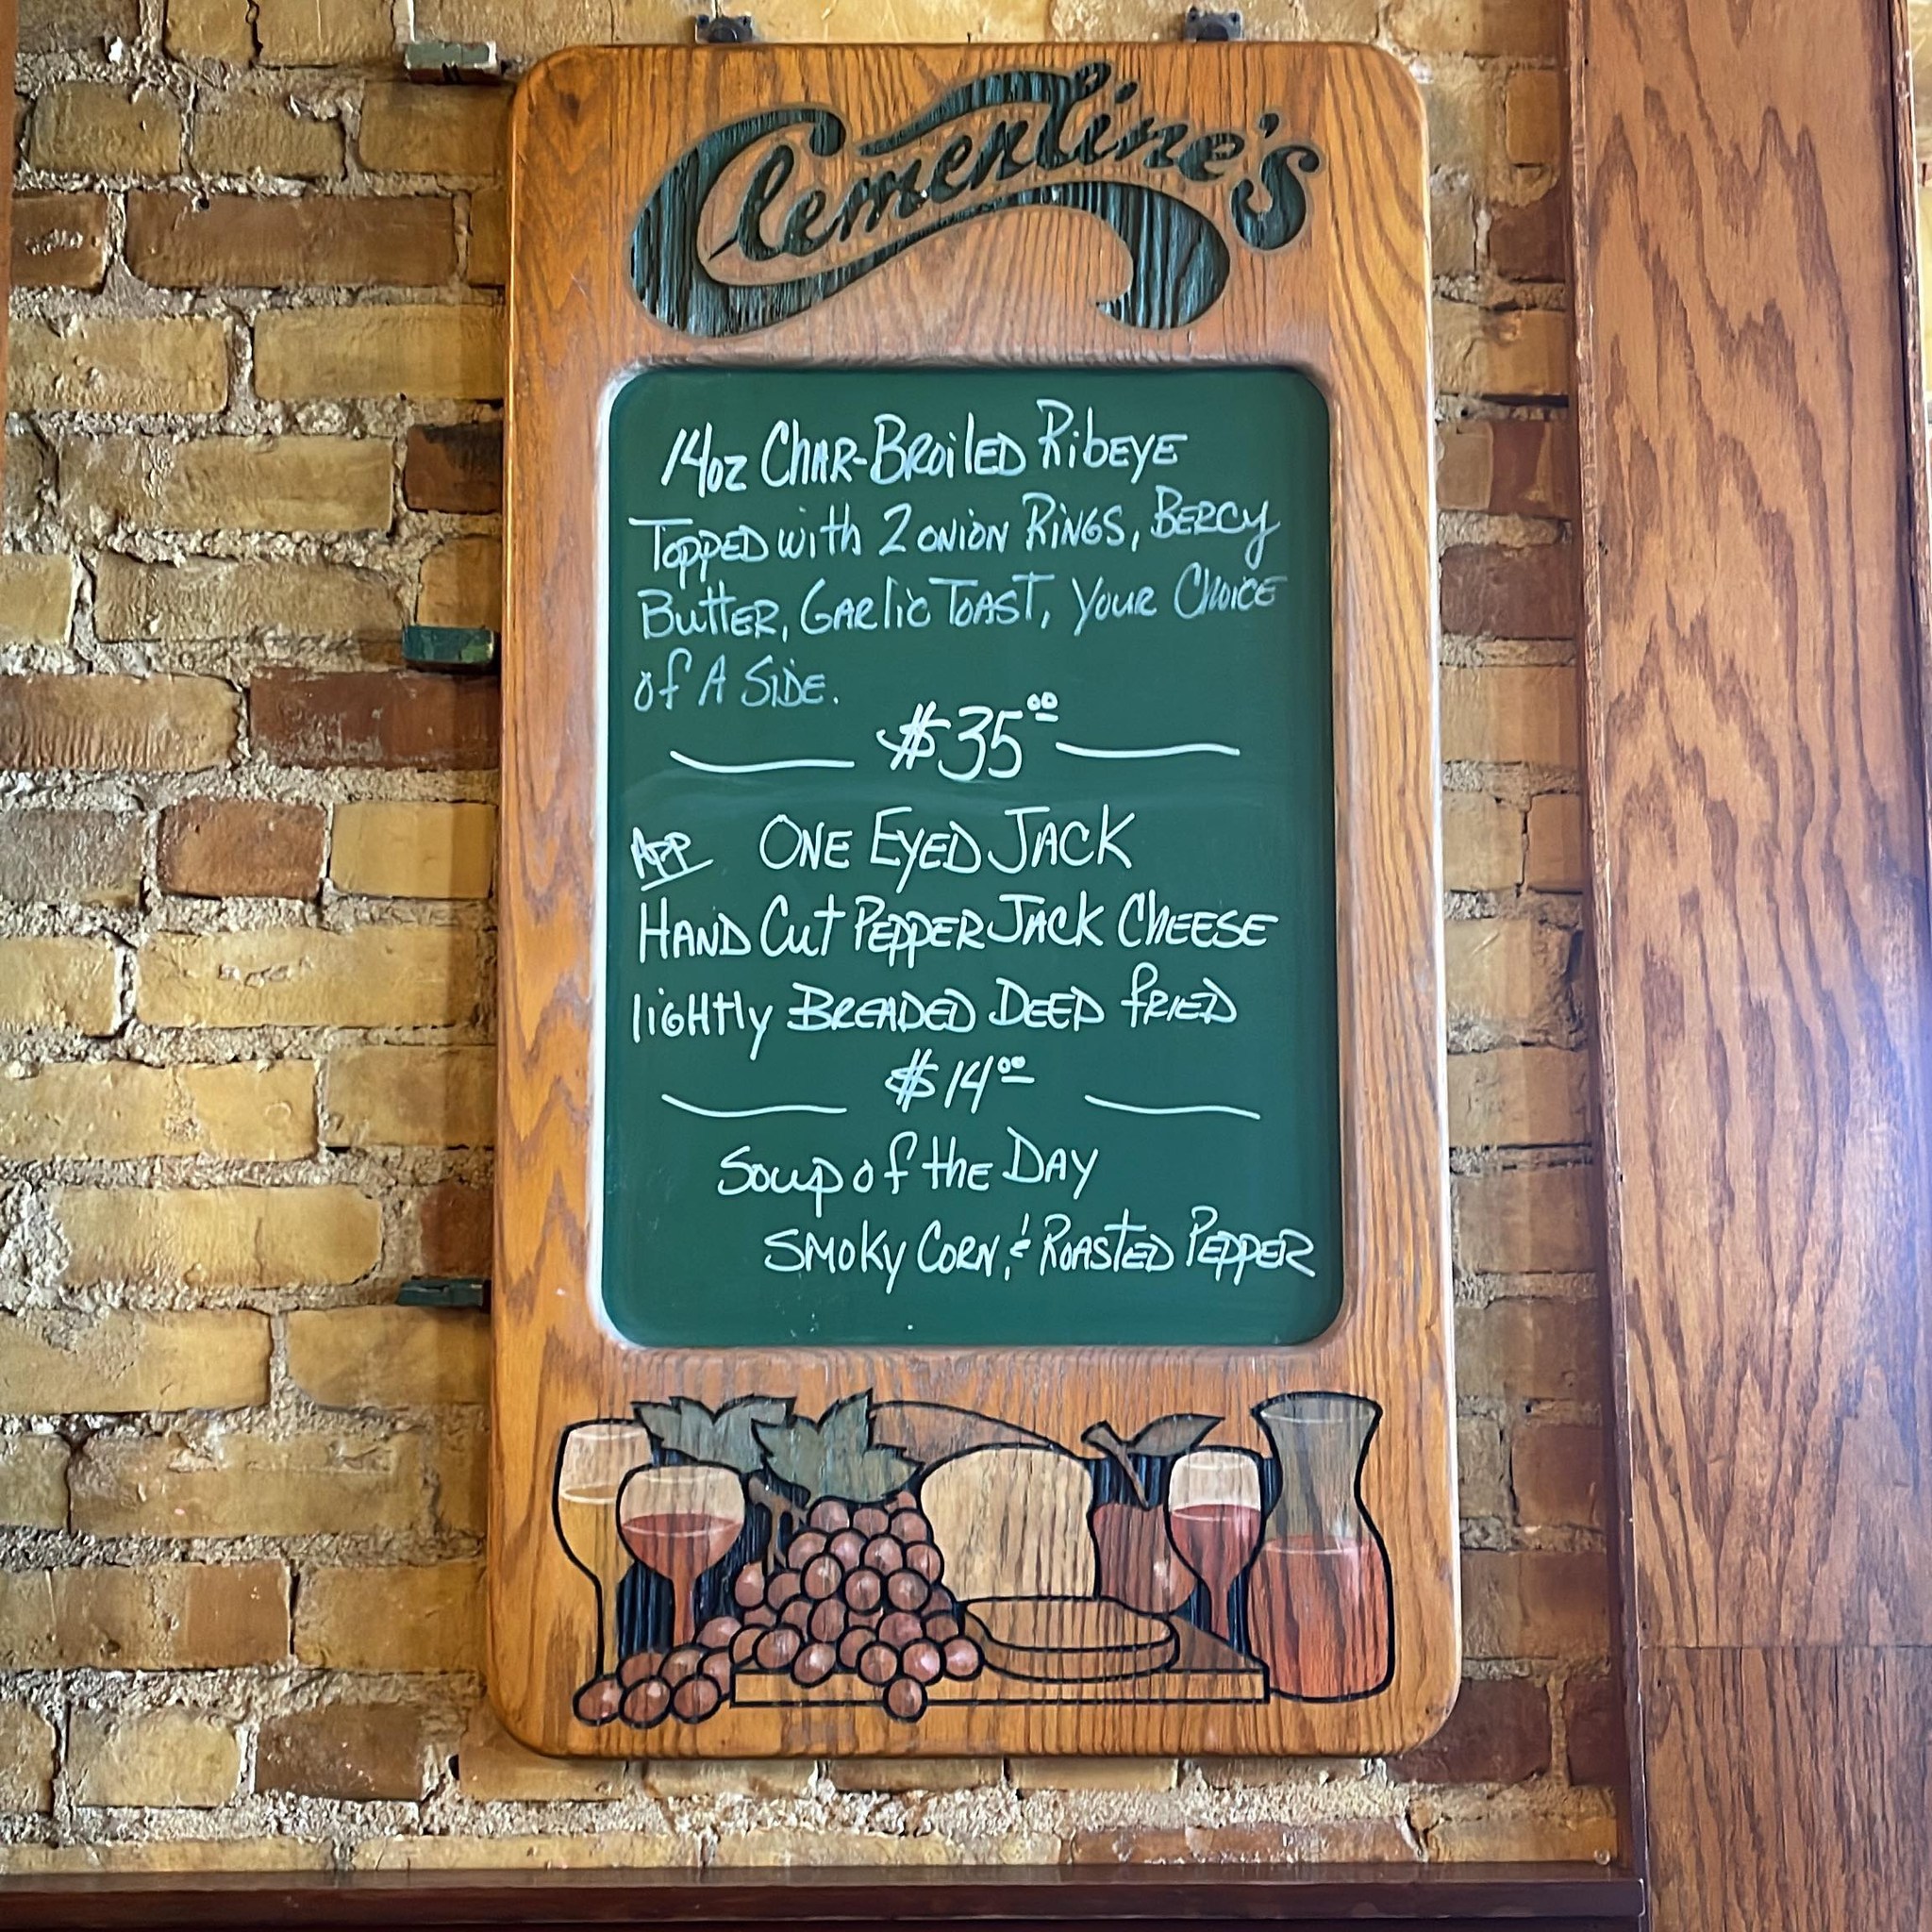 Clementine's
14oz Char-Broiled Ribeye
Topped with 2 onion Rings, Bercy
Butter, Garlic Toast, Your Choice
of A Side.
$35.00
App One Eyed Jack
Hand Cut Pepper Jack Cheese
lightly Breaded Deep fried
$14.00
Soup of the Day
Smoky Corn, & Roasted Pepper